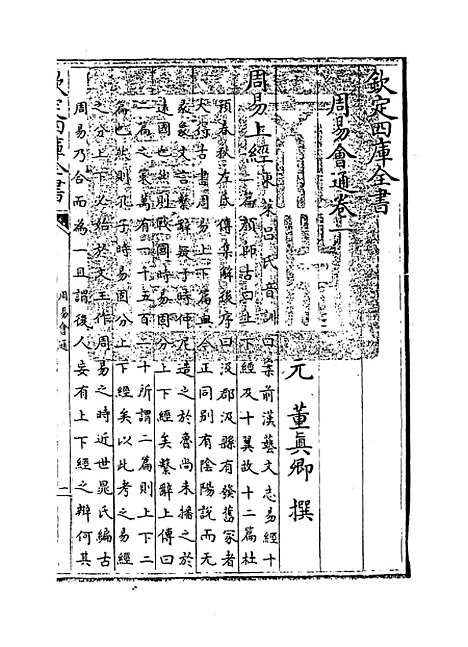 欽定四庫全書
周易會通卷一
元 董真卿 撰
周易上經東萊吕氏音訓曰案前漢藝文志易經十
二篇顔師古曰上下經及十翼故十二篇杜
預春秋左氏傳集解後序曰汲郡汲縣有發舊冢者
大得古書周易上下篇與今正同别有隂陽説而无
彖象文言繫辭疑于時仲尼造之於魯尚未播之於
遠國也然則戰國時易固分上下經矣繫辭上傳曰
二篇之策萬有一千五百二十所謂二篇則上下二
篇也然則孔子時易固分上下經矣以此考之易經
之分上下必始於文王作周易之時近世晁氏編古
周易乃合而為一且謂後人妄有上下經之辯何其
欽定四庫全書
周易會通
一